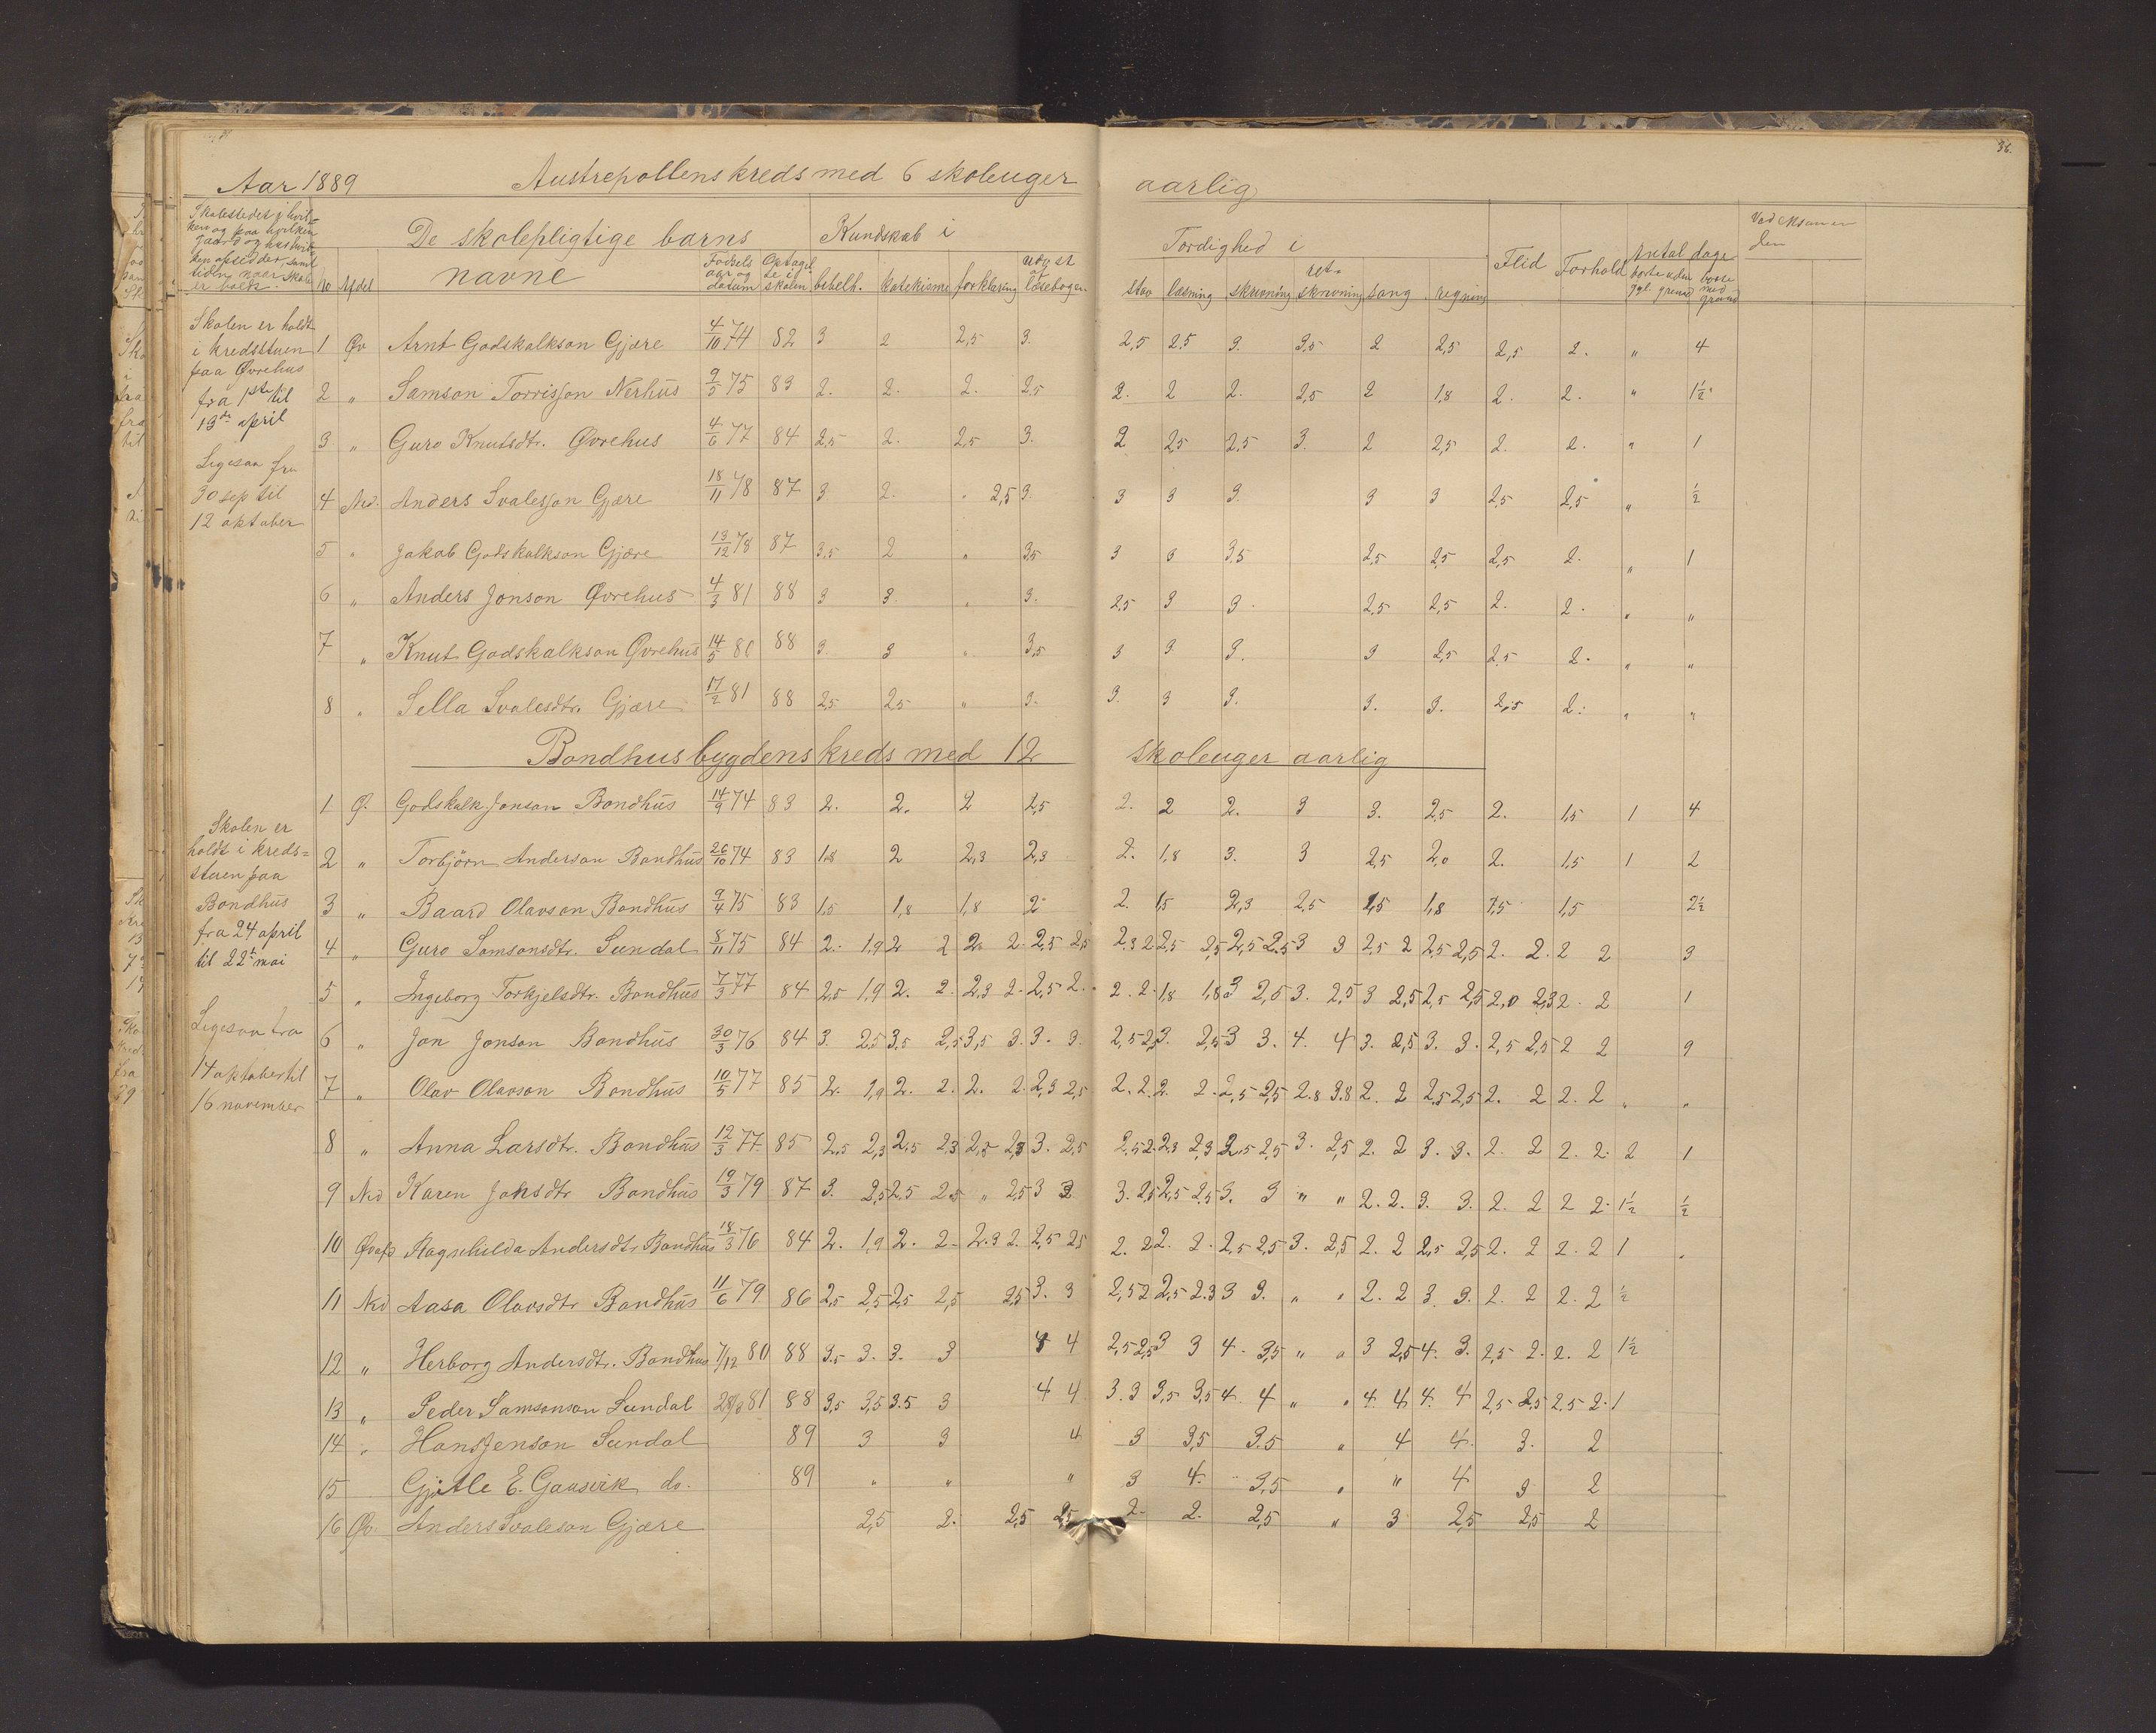 36.
Aar 1889 Austrepollens kreds med 6 skoleuger aarlig
Skolestedet i hvil-
ken og paa hvilken
gaard og hus hvil-
ken afsedder, samt
tiden naar skole
er holdt.
De skolepligtige barns Kundskab i Færdighed i Flid Forhold Antal dage Ved eksamen den
No Afdel navne Fødsels aar og datum Optagel se i skolen bibelh. katekisme forklaring udv. st af læsebogen stav læsning skrivning ret- skrivning sang regning borte uden gyl. grund borte med grund
Skolen er holdt
i kredsstuen
paa Øvrehus
fra 1ste til
13de april
Ligesaa fra
30 sep til
12 oktober
1 Øv Arnt Godskalkson Gjære 4/10 74 82 3 2 2,5 3. 2,5 2,5 3. 3,5 2 2,5 2,5 2. " 4
2 " Samson Torrisson Nerhus 9/5 75 83 2. 2. 2. 2,5 2. 2 2. 2,5 2 1,8 2. 2. " 1½
3 " Guro Knutsdtr. Øvrehus 4/6 77 84 2,5 2. 2,5 3. 2 2,5 2,5 3. 2 2,5 2. 2. " 1
4 Ned. Anders Svalesson Gjære 18/11 78 87 3 2. " 2,5 3. 3 3 3. 3 3 2,5 2,5 " ½
5 " Jakob Godskalkson Gjære 13/12 78 87 3,5 2 " 3,5 3 3 3,5 2,5 2,5 2,5 2. " 1
6 " Anders Jonson Øvrehus 4/3 81 88 3 3. " 3. 2,5 3 3. 2,5 2,5 2. 2. " "
7 " Knut Godskalkson Øvrehus 14/5 80 88 3. 3 " 3,5 3 3. 3. 3 2,5 2,5 2. " "
8 " Sella Svalesdtr. Gjære 17/2 81 88 2,5 2,5 " 3. 3. 3 3. 3. 3. 2,5 2. " "
Bondhusbygdens kreds med 12 skoleuger aarlig
Skolen er
holdt i kreds=
stuen paa
Bondhus
fra 24 april
til 22de mai
Ligesaa fra
14 oktober til
16 november
1 Ø. Godskalk Jonson Bondhus 14/9 74 83 2. 2. 2 2,5 2. 2 2. 3 3. 2,5 2. 1,5 1 4
2 " Torbjörn Anderson Bondhus 26/10 74 83 1,8 2 2,3 2,3 2. 1,8 3. 3 2,5 2,0 2. 1,5 1 2
3 " Baard Olavson Bondhus 9/4 75 83 1,5 1,8 1,8 2 2. 1,5 2,3 2,5 1,5 1,8 1,5 1,5 2½
4 " Guro Samsonsdtr. Sundal 8/11 75 84 2. 1,9 2 2 2. 2. 2,5 2,5 2,3 2 2,5 2,5 2,5 2,5 3 3 2,5 2 2,5 2,5 2. 2. 2 2 3
5 " Ingeborg Torkjelsdtr. Bondhus 7/3 77 84 2,5 1,9 2. 2. 2,3 2. 2,5 2. 2. 2. 1,8 1,8 3 2,5 3. 2,5 3 2,5 2,5 2,5 2,0 2,3 2. 2 1
6 " Jon Jonson Bondhus 30/3 76 84 3. 2,5 3,5 2,5 3,5 3. 3. 3. 2,5 2,5 3. 2,5 3 3. 4. 4 3. 2,5 3. 3. 2,5 2,5 2 2 9
7 " Olav Olavson Bondhus 10/5 77 85 2. 1,9 2. 2. 2. 2. 2,3 2,5 2. 2. 2. 2. 2,5 2,5 2.8 3.8 2. 2 2,5 2,5 2. 2 2. 2 " "
8 " Anna Larsdtr. Bondhus 12/3 77. 85 2,5 2,3 2,5 2,3 2,5 2,3 3. 2,5 2,5 2. 2,3 2,3 2,5 2,5 3. 2,5 2. 2 3. 3. 2. 2 2. 2. 2 1
9 Ned Karen Johsdtr Bondhus 19/3 79 87 3. 2,5 2,5 2,5 " 2,5 3 3 3. 2,5 2,5 2,5 3. 3 " " 2. 2. 3. 3. 2. 2 2 2. 1½ ½
10 Øvafd Ragnhilda Andersdtr. Bondhus 18/3 76 84 2. 1,9 2. 2. 2.3 2. 2,5 2,5 2. 2 2. 2. 2,5 2,5 3. 2,5 2. 2 2,5 2,5 2. 2 2. 2 1 "
11 Ned Aasa Olavsdtr Bondhus 11/6 79 86 2,5 2,5 2,5 2,5 2,5 3. 3 2,5 2 2,5 2.3 3 3. " " 2. 2 3. 3. 2. 2 2. 2 ½
12 " Herborg Andersdtr. Bondhus 7/12 80 88 3.5 3. 3. 3 4 4 2,5 2,5 3 3 4. 3,5 " " 3 2,5 4. 3. 2,5 2. 2. 2 1½
13 " Peder Samsonson Sundal 81 88 3,5 3,5 3.5 3 4 4 3. 3 3,5 3,5 4. 4 " " 4. 4 4. 4 2,5 2,5 2.5 2. 1
14 " Hans Jenson Sundal 89 3 3 4 3 3,5 3.5 " 4 4. 3. 2
15 Gjitle E. Gausvik do. 89 " " " 3 4. 3,5 " " 4 3 2
16 Øv. Anders Svaleson Gjære 2,5 2. 2,5 2,5 2. 2. 2,5 " 3 2,5 2,5 2